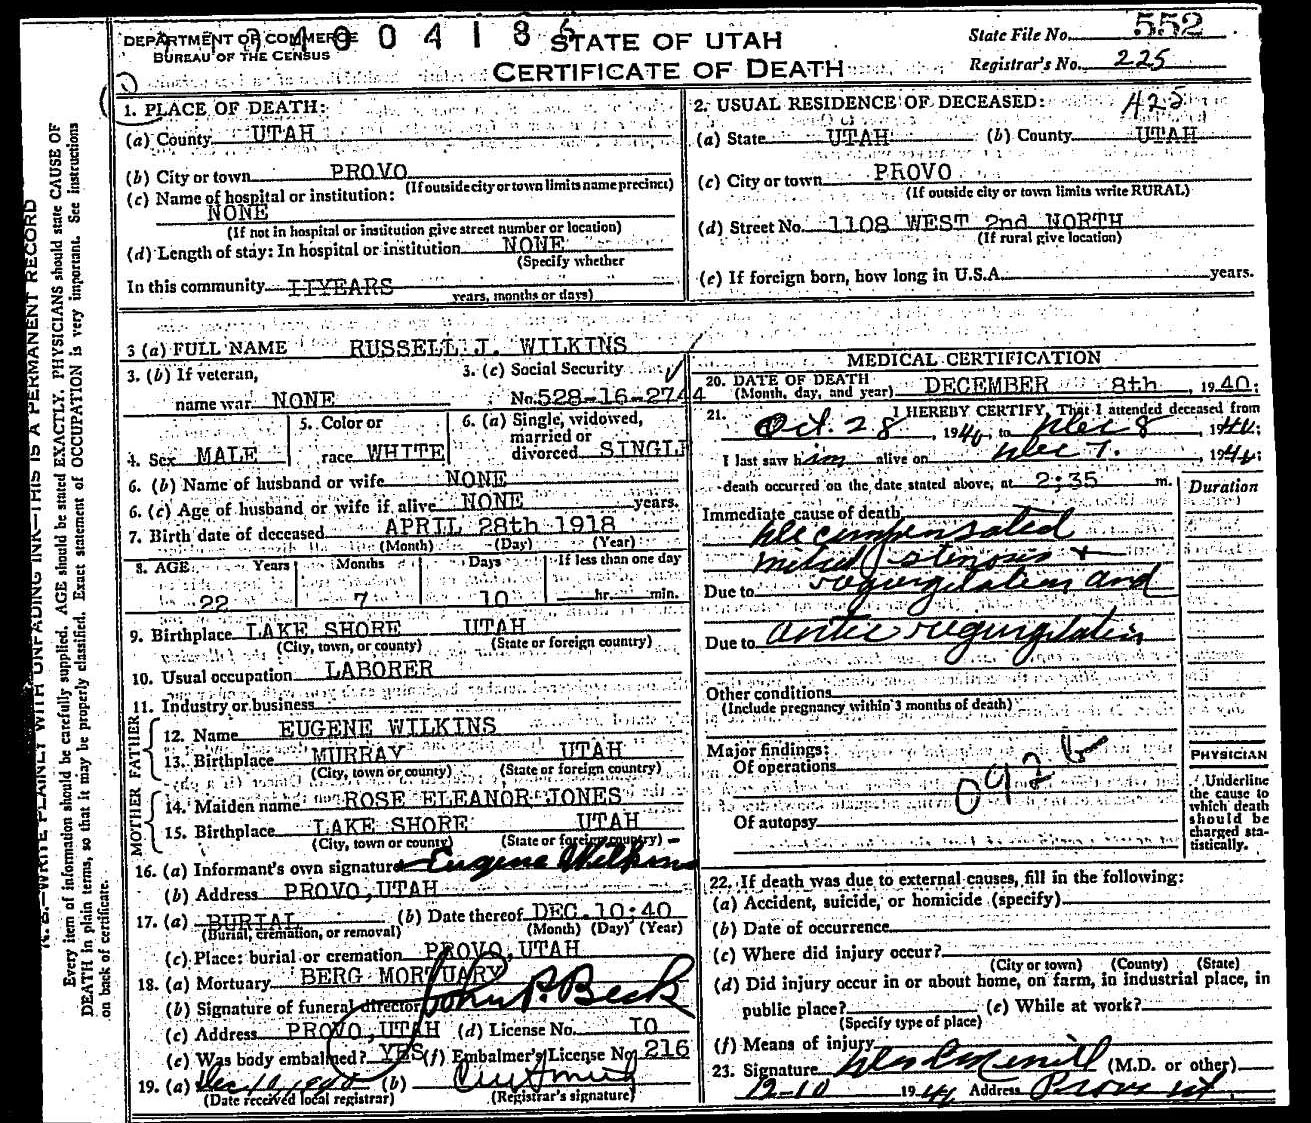 DEPARTMENT OF COMMERCE
BUREAU OF THE CENSUS
STATE OF UTAH
CERTIFICATE OF DEATH
State File No. 552
Registrar's No. 225
1. PLACE OF DEATH:
(a) County UTAH
(b) City or town PROVO
(If outside city or town limits name precinct)
(c) Name of hospital or institution:
NONE
(If not in hospital or institution give street number or location)
(d) Length of stay: In hospital or institution NONE
(Specify whether
In this community IIYEARS
years, months or days)
2. USUAL RESIDENCE OF DECEASED: 425
(a) State UTAH (b) County UTAH
(c) City or town PROVO
(If outside city or town limits write RURAL)
(d) Street No. 1108 WEST 2nd NORTH
(If rural give location)
(e) If foreign born, how long in U.S.A. years.
3 (a) FULL NAME RUSSELL J. WILKINS
3. (b) If veteran,
name war NONE
3. (c) Social Security
No. 528-16-2744
4. Sex MALE
5. Color or
race WHITE
6. (a) Single, widowed,
married or
divorced SINGLE
6. (b) Name of husband or wife NONE
6. (c) Age of husband or wife if alive NONE years.
7. Birth date of deceased APRIL 28th 1918
(Month) (Day) (Year)
8. AGE Years Months Days If less than one day
22 7 10 hr. min.
9. Birthplace LAKE SHORE UTAH
(City, town, or county) (State or foreign country)
10. Usual occupation LABORER
11. Industry or business
FATHER
12. Name EUGENE WILKINS
13. Birthplace MURRAY UTAH
(City, town or county) (State or foreign country)
MOTHER
14. Maiden name ROSE ELEANOR JONES
15. Birthplace LAKE SHORE UTAH
(City, town or county) (State or foreign country)
16. (a) Informant's own signature Eugene Wilkins
(b) Address PROVO, UTAH
17. (a) BURIAL (b) Date thereof DEC. 10; 40
(Burial, cremation, or removal) (Month) (Day) (Year)
(c) Place: burial or cremation PROVO, UTAH
18. (a) Mortuary BERG MORTUARY
(b) Signature of funeral director John P. Beck
(c) Address PROVO, UTAH (d) License No. IO
(e) Was body embalmed? YES (f) Embalmer's License No. 216
19. (a) Dec 10, 1940 (b)
(Date received local registrar) (Registrar's signature)
MEDICAL CERTIFICATION
20. DATE OF DEATH
(Month, day, and year) DECEMBER 8th, 1940;
21. I HEREBY CERTIFY, That I attended deceased from
Oct. 28, 1940, to Dec 8, 1940;
I last saw him alive on Dec 7. 1940;
death occurred on the date stated above, at 2;35 m.
Duration
Immediate cause of death
Decompensated
mitral stenosis +
Due to regurgitation and
Due to aortic regurgitation
Other conditions
(Include pregnancy within 3 months of death)
Major findings:
Of operations
092 b
Of autopsy
PHYSICIAN
Underline
the cause to
which death
should be
charged sta-
tistically.
22. If death was due to external causes, fill in the following:
(a) Accident, suicide, or homicide (specify)
(b) Date of occurrence
(c) Where did injury occur?
(City or town) (County) (State)
(d) Did injury occur in or about home, on farm, in industrial place, in
public place? (e) While at work?
(Specify type of place)
(f) Means of injury
23. Signature (M.D. or other)
12-10 1940 Address Provo Ut.
N. B.—WRITE PLAINLY WITH UNFADING INK—THIS IS A PERMANENT RECORD
Every item of information should be carefully supplied. AGE should be stated EXACTLY. PHYSICIANS should state CAUSE OF
DEATH in plain terms, so that it may be properly classified. Exact statement of OCCUPATION is very important. See instructions
on back of certificate.